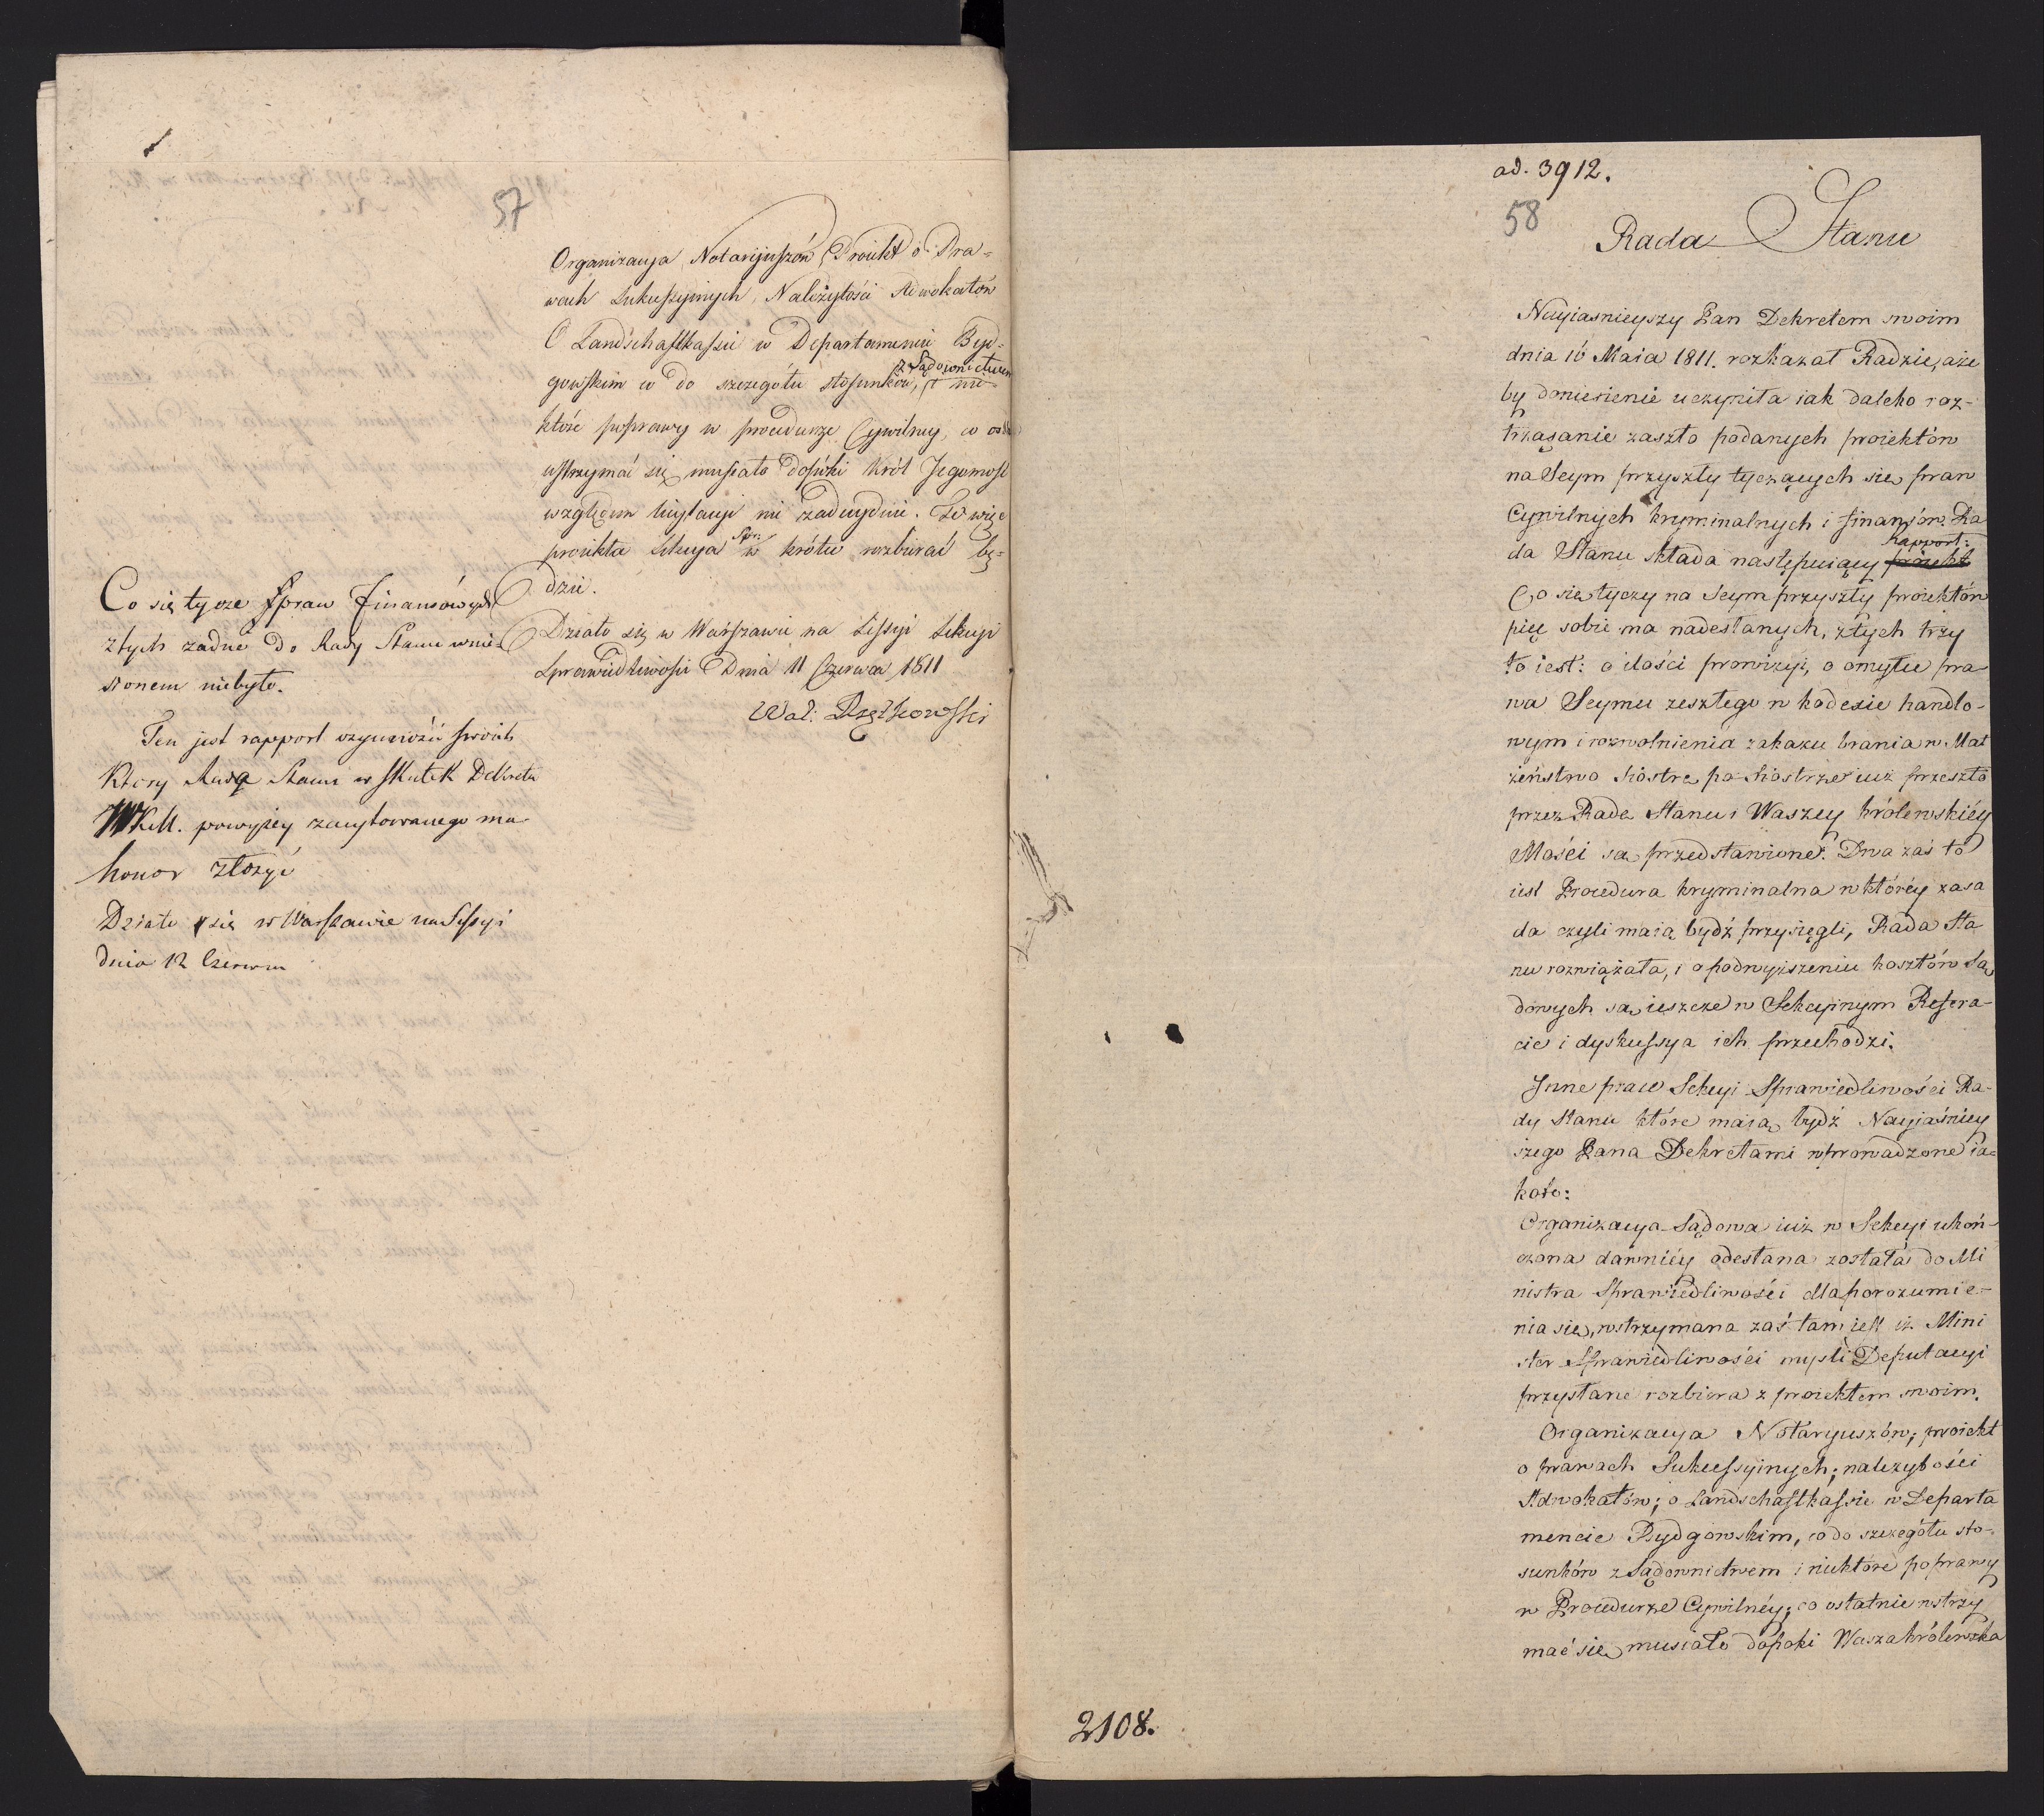 57
Organizacya Notaryuszów, Proiekt o Pra=
wach Sukessyinych, Należytości Adwokatów
O Landschaftkassie w Departamencie Byd=
z Sądownictwem
gowskim co do szczegółu stosunków, i nie
które poprawy w procedurze Cywilney, co
ustrzymać się musiało dopóki Król Jegomość
względem licytacyi nie zadecyduie. Te więc
proiekta Sekcya Spr: w krótce rozbierać bę=
dzie.
Działo się w Warszawie na Sessyi Sekcyi
Sprawiedliwości Dnia 11 Czerwca 1811
Wal:
Co się tycze spraw finansówych
z tych żadne do Rady Stanu wnie=
sionem niebyło.
Ten jest rapport wzgulędzie swoich
Który Rada Stanu w skutek Dekretu
WKM. powyżey zacytowanego ma
honor złożyć
Działo się w Warszawie na Sessyi
dnia 12 Czerwca
ad. 3912.
58
Rada Stanu
Nayiasnieyszy Pan Dekretem swoim
dnia 16 Maia 1811. rozkazał Radzie, aże
by doniesienie uczyniła iak daleko roz-
trząsanie zaszło podanych proiektów
na Seym przyszły tyczących się praw
Cywilnych kryminalnych i finansów. Ra
da Stanu składa następuiący proiekt
Rapport:
Co się tyczy na Seym przyszły proiektów
pięć sobie ma nadesłanych, z tych trzy
to iest: o ilości prowizyi, o omyłce pra
wa Seymu zeszłego w kodexie handlo-
wym i rozwolnienia zakazu brania w Mał
żeństwo siostrę po siostrze iuż przeszło
przez Radę Stanu i Waszey Królewskiéy
Mości są przedstawione. Dwa zaś to
iest Procedura kryminalna w któréy zasa
da czyli maią bydź przysięgli, Rada Sta
nu rozwiązała, i o podwyższeniu kosztów Są
dowych są ieszcze w Sekcyinym Refera-
cie i dyskussya ich przechodzi.
Inne prace Sekcyi Sprawiedliwości Ra-
dy Stanu które maią bydź Nayiaśniey
szego Pana Dekretami wprowadzone ia=
koto:
Organizacya Sądowa iuż w Sekcyi ukoń-
czona dawniéy odesłana została do Mi
nistra Sprawiedliwości dla porozumie-
nia się, wstrzymana zaś tam iest iż Mini
ster Sprawiedliwości myśli Deputacyi
przysłane rozbiera z proiektem swoim.
Organizacya Notaryuszów; proiekt
o prawach Sukcessyinych; należytości
Adwokatów; o Landschaftkassie w Departa
mencie Bydgowskim, co do szczegółu sto-
sunków z Sądownictwem i niektóre poprawy
w Procedurze Cywilnéy; co ostatnie wstrzy
mać się musiało dopoki Wasza królewska
2108.